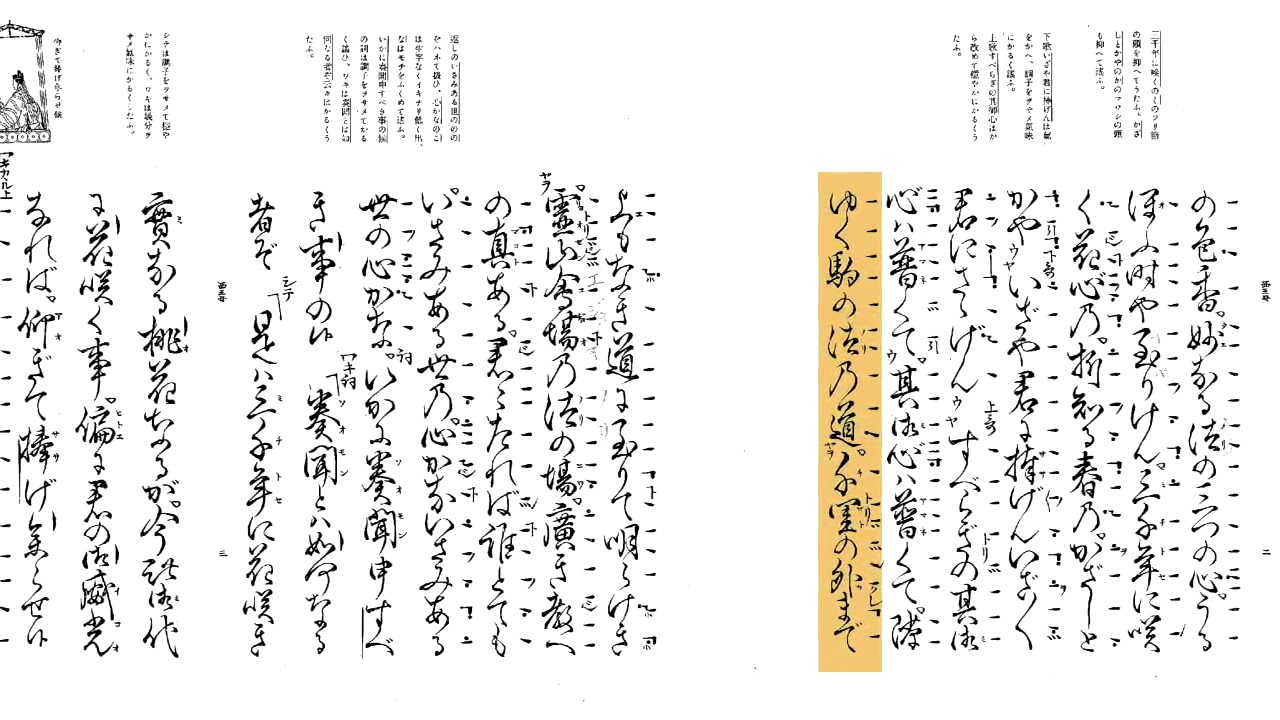 三千年に咲くのくのフリ節
の頭を抑へてうたふ。かざ
しとかやのかのマワシの頭
も抑へて謠ふ。
下歌いざや君に捧げんは氣
をかへ、調子をヲサメ氣味
にかるく謠ふ。
上歌すべらぎの其御心はか
ら改めて穩やかにかるくう
たふ。
西王母
二
の色香。妙なる法の三つの心。うる
ほふ時や至りけん。三千年に咲
く花心乃。折知る春乃。かざしと
かや 下歌 いざや君に捧げんいざ〱
君にさゝげん 上歌 すべらぎの其御
心ハ普くて。其御心ハ普くて。隙
ゆく駒の法乃道。千里の外まで
返しのいさみある世のの
をハネて扱ひ、心かなのこ
は生字なくイキナリ低く出、
なはモチをふくめて謠ふ。
いかに奏聞申すべき事の候
の詞は調子をヲサメてかる
く謠ひ、ワキは奏聞とは如
何なる者ぞ云々はかるくう
たふ。
シテは調子をヲサメて穩や
かにかるく、ワキは幾分ヲ
サメ氣味にかるくうたふ。
仰ぎて捧げ參らせ候
上もなき道に至りて明らけき
靈山會場乃法の場。廣き教へ
の真ある。君〻たれば誰とても
いさみある世乃。心かないさみある
世の心かな。詞 いかに奏聞申すべ
き事の候 ワキ詞 奏聞とハ如何なる
者ぞ シテ 是ハ三千年に花咲き
西王母
三
實なる桃花なるが。今此御代
に花咲く事。偏に君の御威光
なれば。仰ぎて捧げ參らせ候
ワキカル上